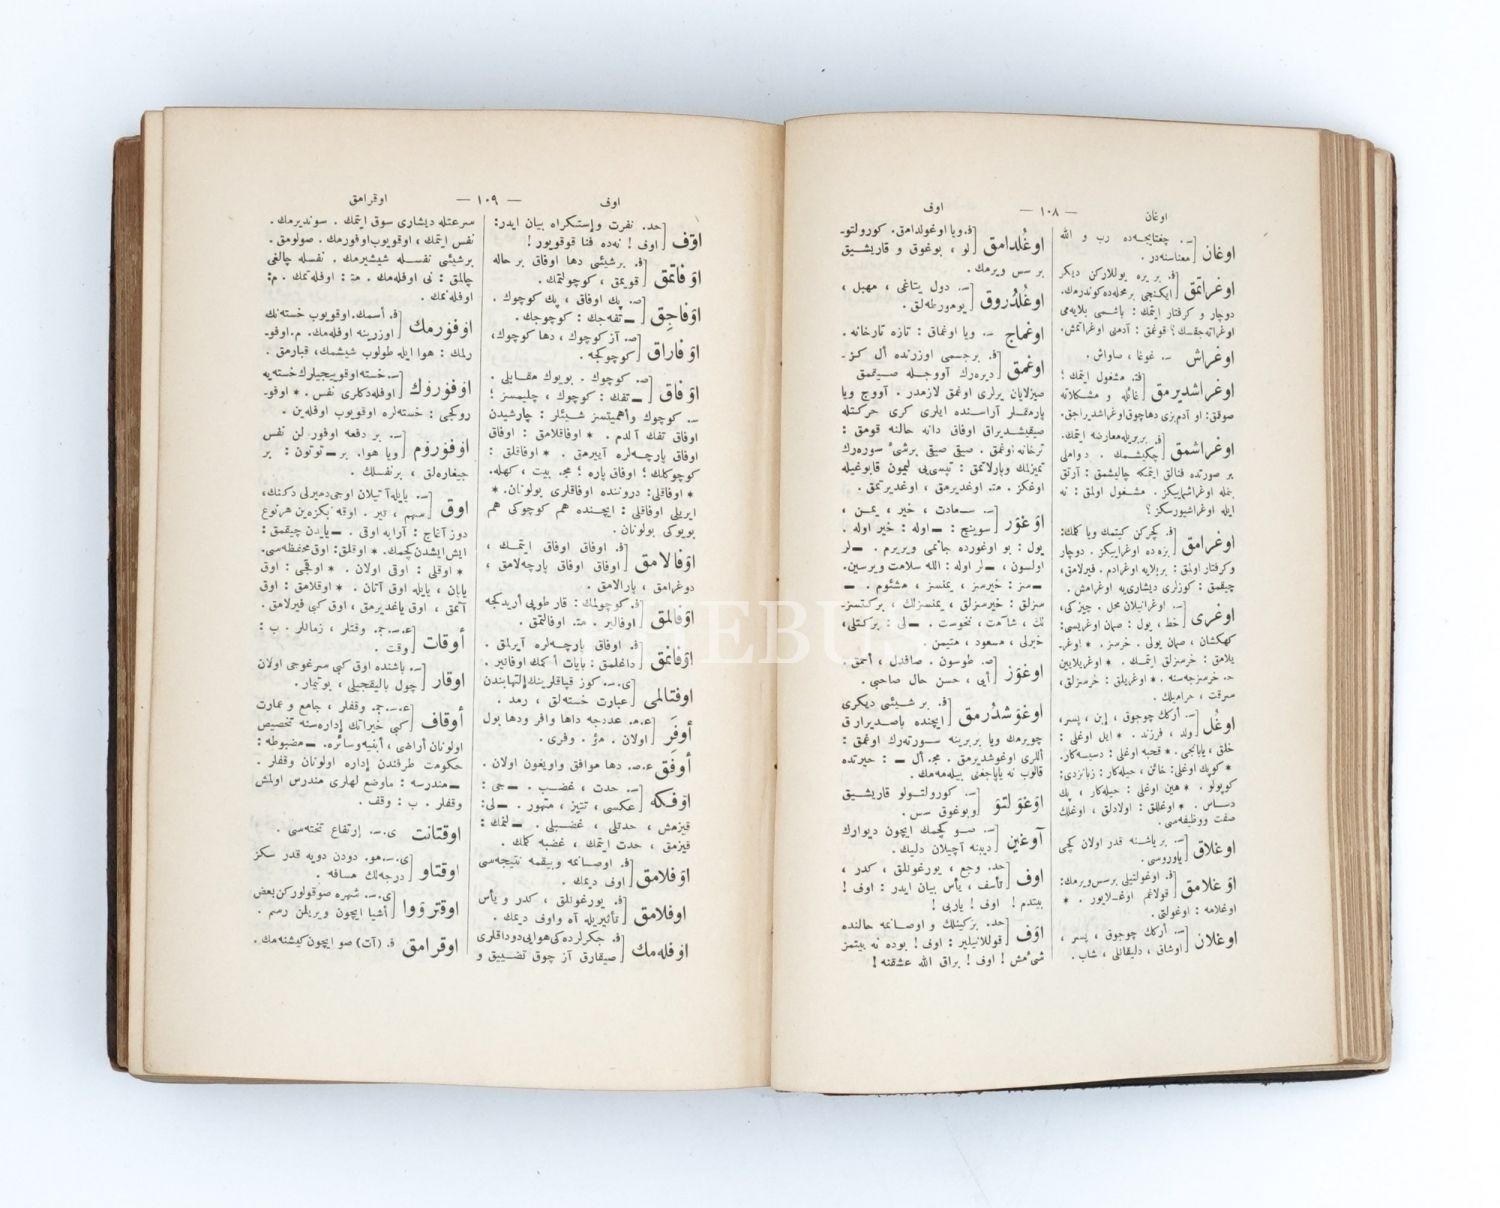 اوغان — ١٠٨ — اوف
اوغان [ ـ. چغتایجه‌ده رب و الله
معناسنه‌در.
اوغراتمق [ ف. بر یره یوللارکن دیکر
ایکنجی بر محله‌ده کوندرمك.
دوچار و کرفتار ایتمك : باشمی بلایه‌می
اوغراته‌جقسك؟ قوغمق : آدمی اوغراتمش.
اوغراش ـ. غوغا ، صاواش.
اوغراشدیرمق [ فت. مشغول ایتمك ؛
غائله و مشکلاته
صوقق: او آدم بزی دهاچوق اوغراشدیراجق.
اوغراشمق [ ف. بربریله معارضه ایتمك.
چکیشمك. دواملی
بر صورتده فنالق ایتمکه چالیشمق : آرتق
بنمله اوغراشمایکز. مشغول اولمق : نه
ایله اوغراشیورسکز؟
اوغرامق [ ف. کچرکن کیتمك ویا کلمك:
بزه ده اوغرایکز. دوچار
وکرفتار اولمق : بر بلایه اوغرادم. فیرلامق،
چیقمق : کوزلری دیشاری‌یه اوغرامش.
اوغری [ ـ. اوغرانیلان محل. چیزکی،
خط ، یول : صمان اوغریسی:
کهکشان ، صمان یولی. خرسز. * اوغر-
یلامق : خرسزلق ایتمك. * اوغریلایین
ح. خرسزجه‌سنه. * اوغریلق : خرسزلق،
سرقت ، حرامیلك.
اوغُل [ ـ. ارکك چوجوق ، ابن ، پسر،
ولد ، فرزند. * ایل اوغلی :
خلق ، یابانجی. * قحبه اوغلی : دسیسه‌کار.
* کوپك اوغلی: خائن ، حیله‌کار : زبانزدی:
کوپولو. * هین اوغلی : حیله‌کار ، پك
دساس. * اوغللق : اولادلق ، اوغلك
صفت ووظیفه‌سی.
اوغلاق [ ـ. بر یاشنه قدر اولان کچی
یاوروسی.
اوغلامق [ ف. اوغولتیلی بر سس ویرمك:
قولاغم اوغـلایور. *
اوغلامه : اوغولتی.
اوغلان [ ـ. ارکك چوجوق ، پسر ،
اوشاق ، دلیقانلی ، شاب.
اوغُلدامق [ ف. ویا اوغولدامق. کورولتو-
لو ، بوغوق و قاریشیق
بر سس ویرمك.
اوغُلدُروق [ ـ. دول یتاغی ، مهبل ،
یومورطه‌لق.
اوغماج ـ. ویا اوغماق : تازه تارخانه.
اوغمق [ ف. برجسمی اوزرنده أل کز-
دیره‌رك آووجـله صیقمق
صیزلایان یرلری اوغمق لازمدر. آووج ویا
پارمقلر آراسنده ایلری کری حرکتله
صیقیشدیراق اوفاق دانه حالنه قومق :
ترخانه اوغمق. صیق صیق برشئ سوره‌رك
تمیزلمك وپارلاتمق : تپسی‌یی لیمون قابوغیله
اوغکز. مت. اوغدیرمق ، اوغدیرتمق.
اوغوَر [ ـ. سعادت ، خیر ، یمن ،
سوینچ : ـ اوله : خیر اوله.
یول : بو اوغورده جانمی ویریرم. ـ لر
اولسون ، ـ لر اوله : الله سلامت ویرسین.
ـ سز : خیرسز ، یمنسز ، مشئوم. ـ
سزلق : خیرسزلق ، یمنسزلك ، برکتسز-
لك ، شآمت ، نحوست. ـ لی : برکتلی،
خیرلی ، مسعود ، متیمن.
اوغوَز [ ص. طوسون. صافدل ، أحمق.
أیی ، حسن حال صاحبی.
اوغوَشدُرمق [ ف. بر شیئی دیکری
ایچنده باصدیراراق
چویرمك ویا بربرینه سورته‌رك اوغمق :
أللری اوغوشدیرمق. مج. أل ـ : حیرتده
قالوب نه یاپاجغنی بیله‌مه‌مك.
اوَغوَلتوَ [ ـ. کورولتولو قاریشیق
وبوغوق سس.
آوغین [ ـ. صو کچمك ایچون دیوارك
دیبنه آچیلان دلیك.
اوف [ حد. وجع ، یورغونلق ، کدر ،
تأسف ، یأس بیان ایدر : اوف !
بیتدم ! اوف ! یاربی !
اوَف [ حد. بزکینلك و اوصانمه حالنده
قوللانیلیر : اوفی ! بوده نه بیتمز
شیءمش ! اوف ! براق الله عشقنه !
اوفی — ١٠٩ — اوقرامق
اوَف [ حد. نفرت و استکراه بیان ایدر:
اوف ! نه‌ده فنا قوقویور !
اوَفاتمق [ ف. بر شیئی دها اوفاق بر حاله
قویمق ، کوچولتمك.
اوَفاجِق [ ص. پك اوفاق ، پك کوچوك.
ـ تفه‌جك : کوچوجك.
اوَفاراق [ ص. آز کوچوك ، دها کوچوك،
کوچوکجه.
اوَفاق [ ص. کوچوك. بویوك مقابلی.
ـ تفك : کوچوك ، چلیمسز ؛
ـ. کوچوك وأهمیتسز شیئلر : چارشیدن
اوفاق تفك آلدم. * اوفاقلامق : اوفاق
اوفاق پارچه‌لره آییرمق. * اوفاقلق :
کوچوکلك ؛ اوفاق پاره ؛ مج. بیت ، کهله.
* اوفاقلی: دروننده اوفاقلری بولونان. *
ایریلی اوفاقلی : ایچنده هم کوچوکی هم
بویوکی بولونان.
اوَفالامق [ ف. اوفاق اوفاق ایتمـك ،
اوفاق اوفاق پارچه‌لامق ،
دوغرامق ، پارالامق.
اوَفالمق [ ف. کوچولمك : قار طوپی أریدکجه
اوفالیر. مت. اوفالتمق.
اوَفانمق [ ف. اوفاق پارچه‌لره آیرلق.
داغلمق : بایات أکمك اوفانیر.
اوفتالمی [ ی.ـ. کوز قپاقلرینك إلتهابندن
عبارت خسته‌لق ، رمد.
أوفَر [ ع.م. عددجه داها وافر ودها بول
اولان. مؤ. وفری.
أوفَق ع.ص. دها موافق واویغون اولان.
اوَفکه [ ـ. حدت ، غضب. ـ جی :
عکسی ، تتیز ، متهور. ـ لی:
قیزمش ، حدتلی ، غضبـلی. ـ لنمك :
قیزمق ، حدت ایتمك ، غضبه کلمك.
اوَفلامق [ ف. اوصانمه وبیقمه نتیجه‌سی
اوف دیمك.
اوفلامق [ ف. یورغونلق ، کدر و یأس
تأثیریله آه واوف دیمك.
اوفله‌مك [ ف. جکرلرده‌کی هوایی دوداقلری
صیقارق آز چوق تضییق و
سرعتله دیشاری سوق ایتمك. سوندیرمك.
نفس ایتمك ، اوقویوب اوفورمك. صولومق.
برشیئی نفسـله شیشیرمك. نفسله چالغی
چالمق : نی اوفله‌مك. مت. اوفله‌تمك. م:
اوفله‌نمك.
اوفورمك [ ف. أسمك. اوقویوب خسته‌نك
اوزرینه اوفله‌مك. م. اوفو-
رلمك : هوا ایله طولوب شیشمك ، قبارمق.
اوفوروك [ ـ. خسته اوقوییجیلرك خسته‌یه
اوفله‌دکلری نفس. * اوفو-
روکجی : خسته‌لره اوقویوب اوفله‌ین.
اوفوروم [ ـ. بر دفعه اوفورلن نفس
ویا هوا. بر ـ توتون : بر
جیغاره‌لق ، برنفسلك.
اوق [ ـ. یایله آتیلان اوجی دمیرلی دکنك،
سهم ، تیر. اوقه بکزه‌ین هرنوع
دوز آغاج : آرابه اوقی. ـ یایدن چیقمق :
ایش ایشدن کچمك. * اوقلق: اوق محفظه‌سی.
* اوقلی : اوقی اولان. * اوقجی : اوق
یاپان ، یایله اوق آتان. * اوقلامق : اوق
آتمق ، اوق یاغدیرمق ، اوق کبی فیرلامق.
أوقات [ ع.ـ.ج. وقتلر ، زمانلر. ب :
وقت.
اوقار [ ـ. باشنده اوق کبی سرغوجی اولان
چول بالیقجیلی ، بوتیمار.
أوقاف [ ع.ـ.ج. وقفلر ، جامع و عمارت
کبی خیراتك إداره‌سنه تخصیص
اولونان أراضی ، أبنیه وسائره. ـ مضبوطه :
حکومت طرفندن إداره اولونان وقفلر.
ـ مندرسه : ماوضع لهلری مندرس اولمش
وقفلر. ب : وقف.
اوقتانت ی.ـ. إرتفاع تخته‌سی.
اوقتاو [ ی.ـ.مو. دودن دویه قدر سکز
درجه‌لك مسافه.
اوقتروَوا [ ی.ـ. شهره صوقولورکن بعض
أشیا ایچون ویریلن رسم.
اوقرامق ف. (آت) صو ایچون کیشنه‌مك.
HEBUS